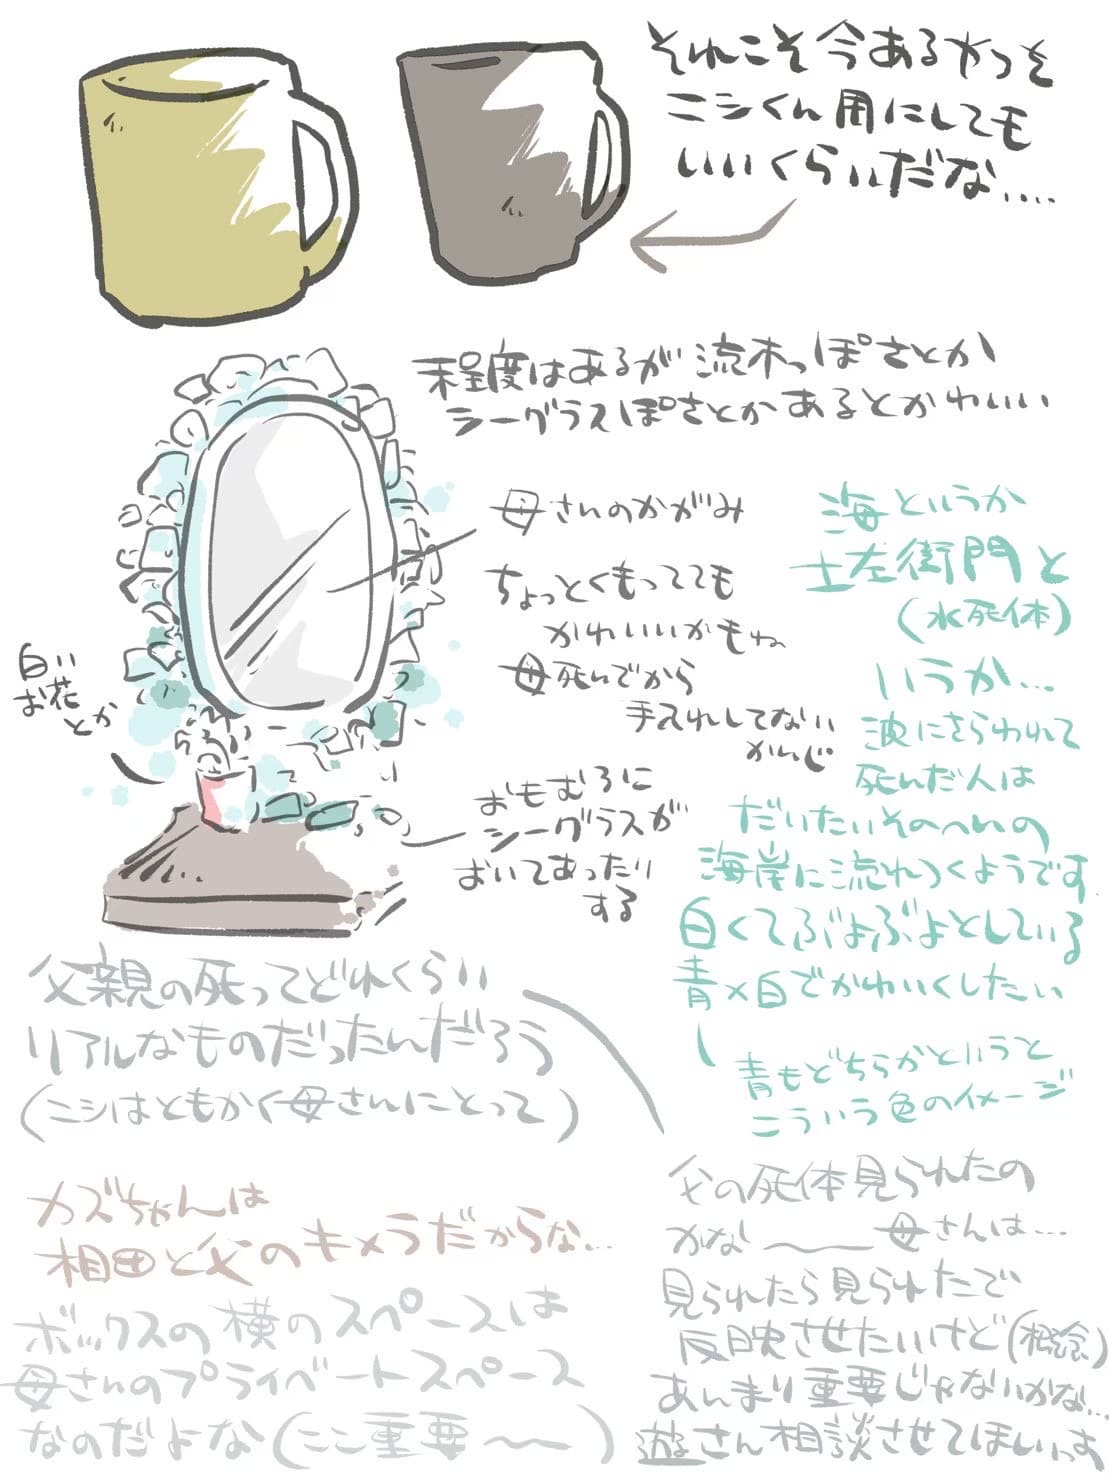 それこそ今あるやつを
ニシくん用にしても
いいくらいだな....
程度はあるが流木っぽさとか
シーグラスぽさとかあるとかわいい
母さんのかがみ
ちょっとくもってても
かわいいかもね
母死んでから
手入れしてない
かんじ
白い
お花
とか
おもむろに
シーグラスが
おいてあったり
する
海というか
土左衛門と
(水死体)
いうか...
波にさらわれて
死んだ人は
だいたいそのへんの
海岸に流れつくようです
白くてぶよぶよとしている
青×白でかわいくしたい
青もどちらかというと
こういう色のイメージ
父親の死ってどれくらい
リアルなものだったんだろう
(ニシはともかく母さんにとって)
父の死体見られたの
かな〜〜母さんは...
見られたら見られたで
反映させたいけど(概念)
あんまり重要じゃないかな...
遊さん相談させてほしいっす
カズちゃんは
相田と父のキメラだからな...
ボックスの横のスペースは
母さんのプライベートスペース
なのだよな(ここ重要〜〜)